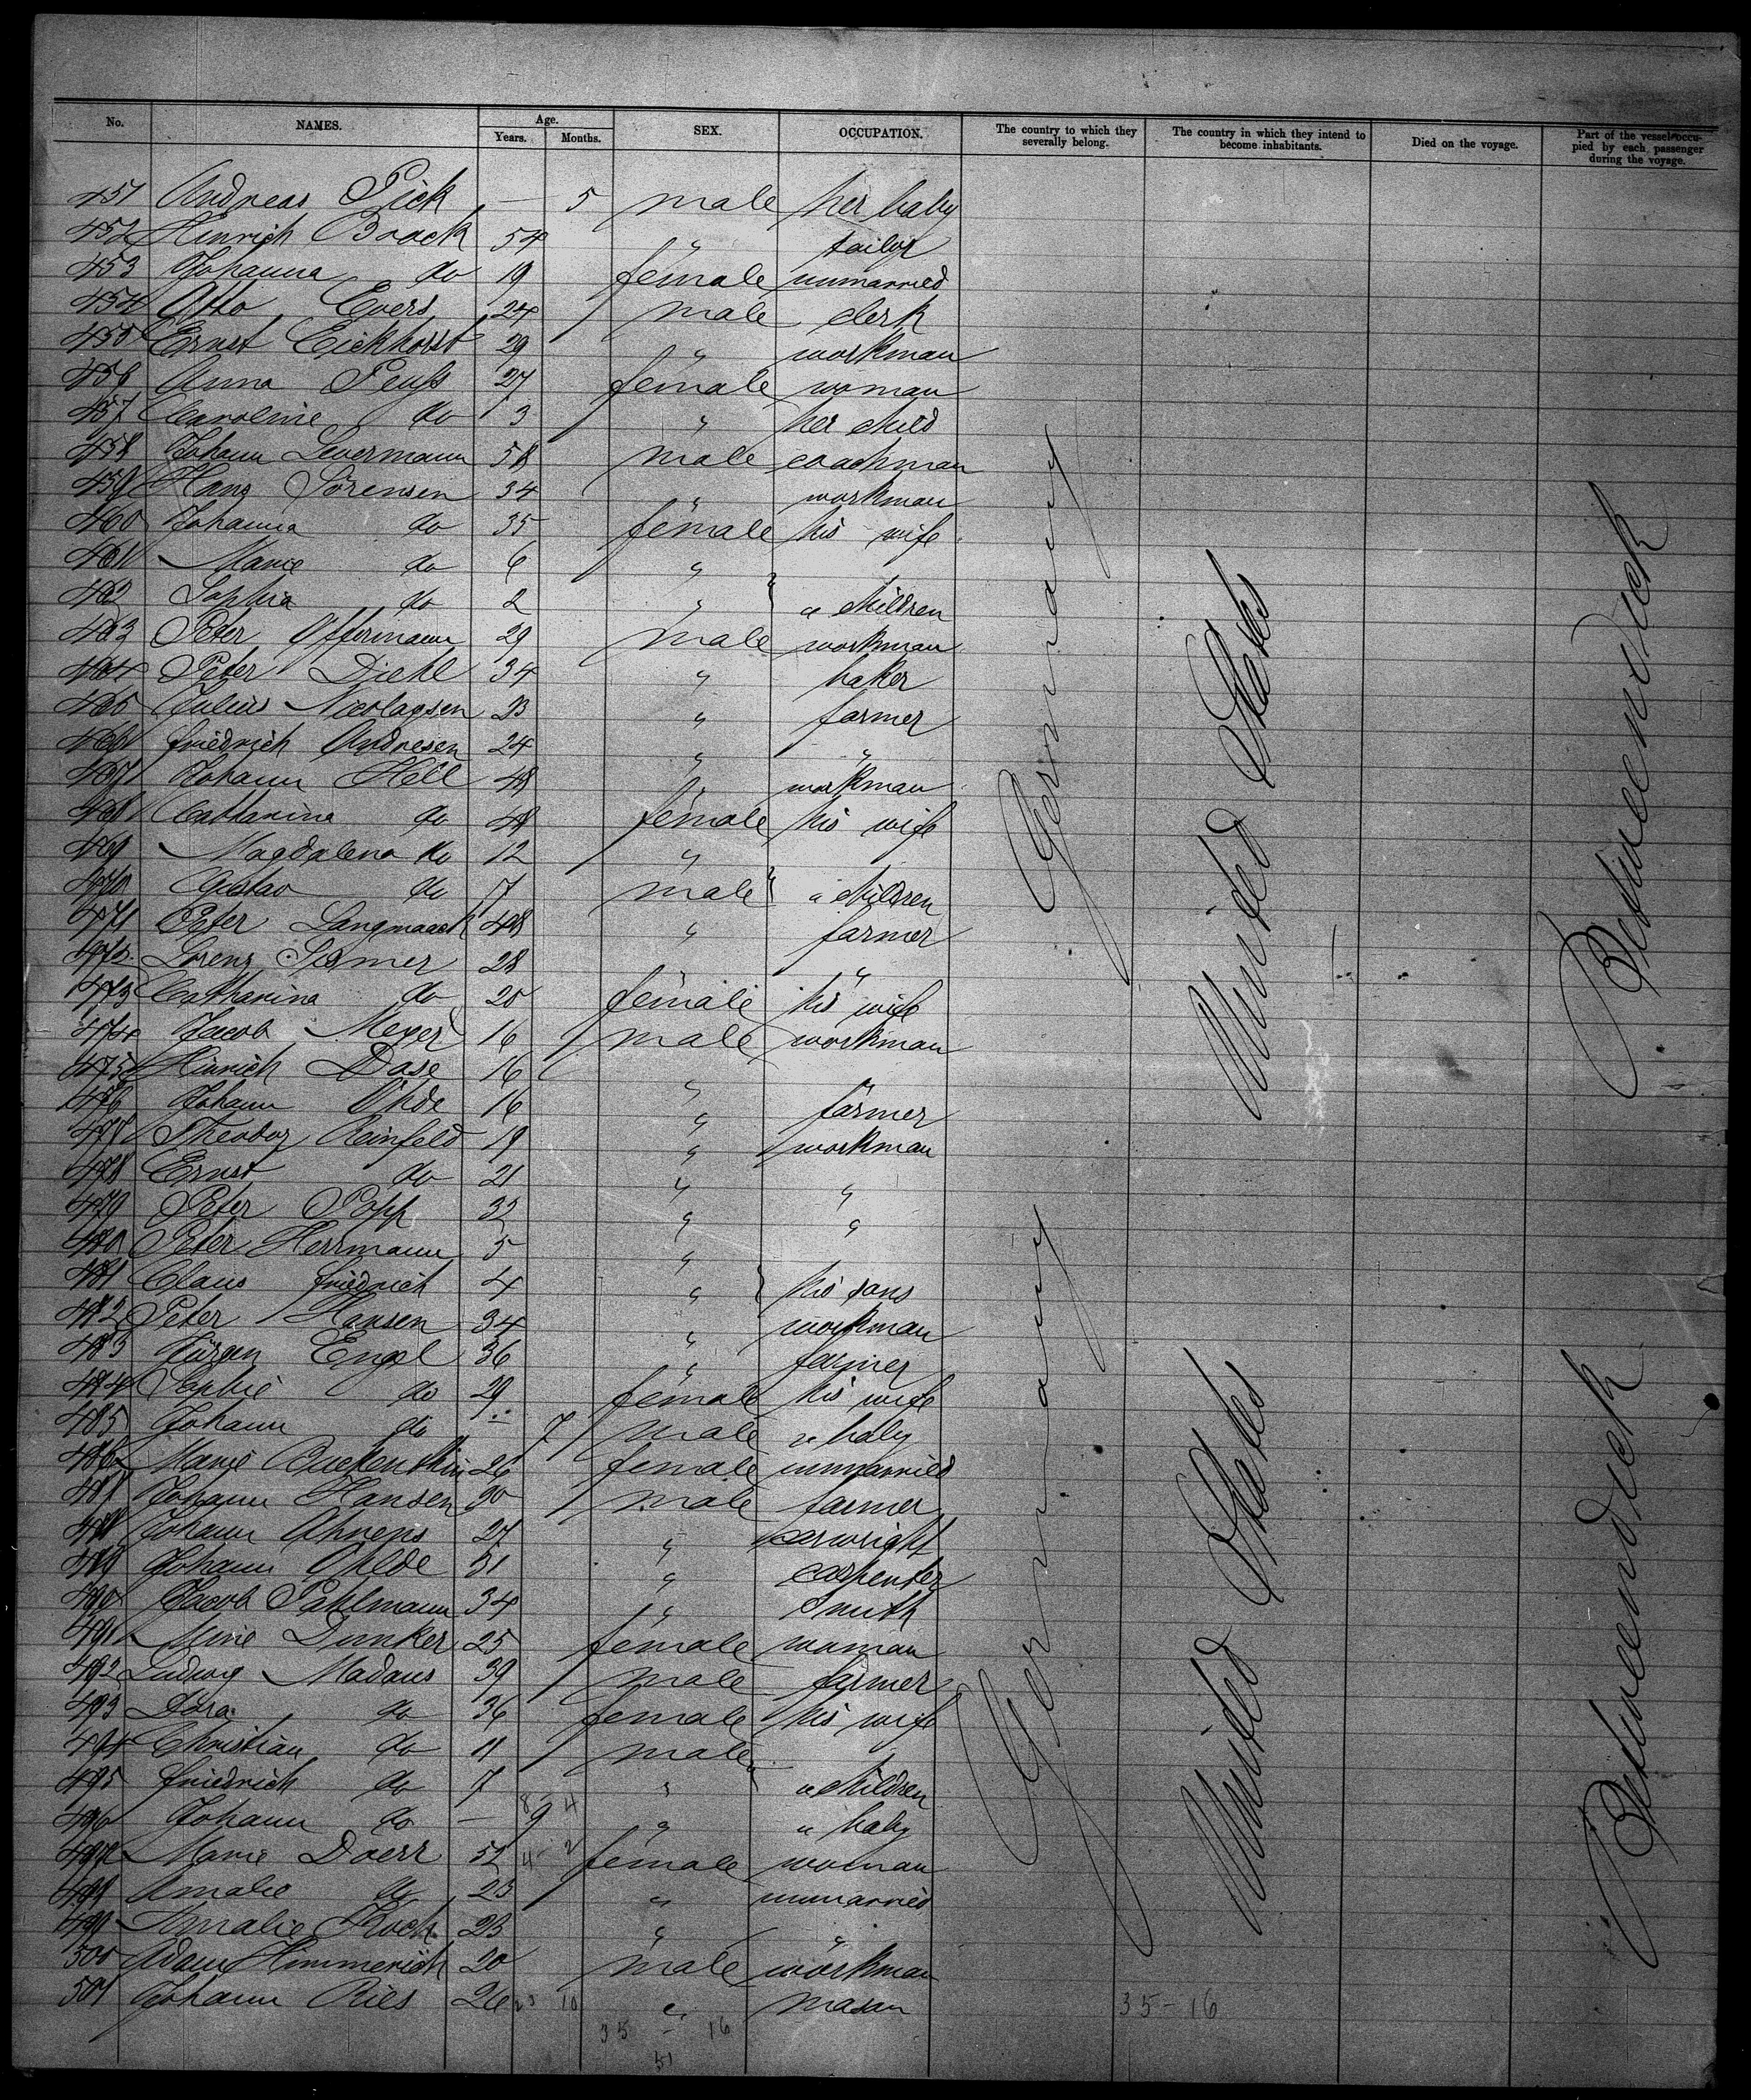 No. NAMES. Age. Years. Months. SEX. OCCUPATION. The country to which they severally belong. The country in which they intend to become inhabitants. Died on the voyage. Part of the vessel occupied by each passenger during the voyage.
451 Andreas Pick — 5 male her baby
452 Hinrich Braack 54 " tailor
453 Johanna do 19 female unmarried
454 Otto Evers 24 male clerk
455 Ernst Eickhorst 29 " workman
456 Anna Peuß 27 female woman
457 Caroline do 3 " her child
458 Johann Levermann 58 male coachman
459 Hans Sörensen 34 " workman
460 Johanna do 35 female his wife
461 Marie do 6 "
462 Sophia do 2 " } " children
463 Peter Offermann 29 male workman
464 Peter Diehl 34 " baker
465 Julius Nicolaysen 23 " farmer
466 Friedrich Andresen 24 " "
467 Johann Hell 48 " workman
468 Catharina do 48 female his wife
469 Magdalena do 12 "
470 Gustav do 7 male } " children
471 Peter Langmaack 48 " farmer
472 Lorenz 28 " "
473 Catharina do 20 female his wife
474 Jacob Meyer 16 male workman
475 Hinrich Dose 16 " "
476 Johann Ohde 16 " farmer
477 Theodor Reinfeld 19 " workman
478 Ernst do 21 " "
479 Peter Popp 32 " "
480 Peter Herrmann 5 "
481 Claus Friedrich 4 " } his sons
482 Peter Hansen 34 " workman
483 Jürgen Engel 36 " farmer
484 Sophie do 29 female his wife
485 Johann do — 7 male " baby
486 Marie 26 female unmarried
487 Johann Hansen 30 male farmer
488 Johann Ahrens 27 " carwright
489 Johann Ohlde 31 " carpenter
490 Jacob Pahlmann 34 " smith
491 Mine Dunker 25 female woman
492 Ludwig Madaus 39 male farmer
493 Dora do 36 female his wife
494 Christian do 11 male
495 Friedrich do 7 " } " children
496 Johann do — 9 " " baby
497 Marie Doerr 52 female woman
498 Amalie do 23 " unmarried
499 Amalie Koch 23 " "
500 Adam Himmerich 20 male workman
501 Johann Ries 26 " mason
23 10
35 - 16
51
35-16
Germany
United States
Betweendeck
Germany
United States
Betweendeck